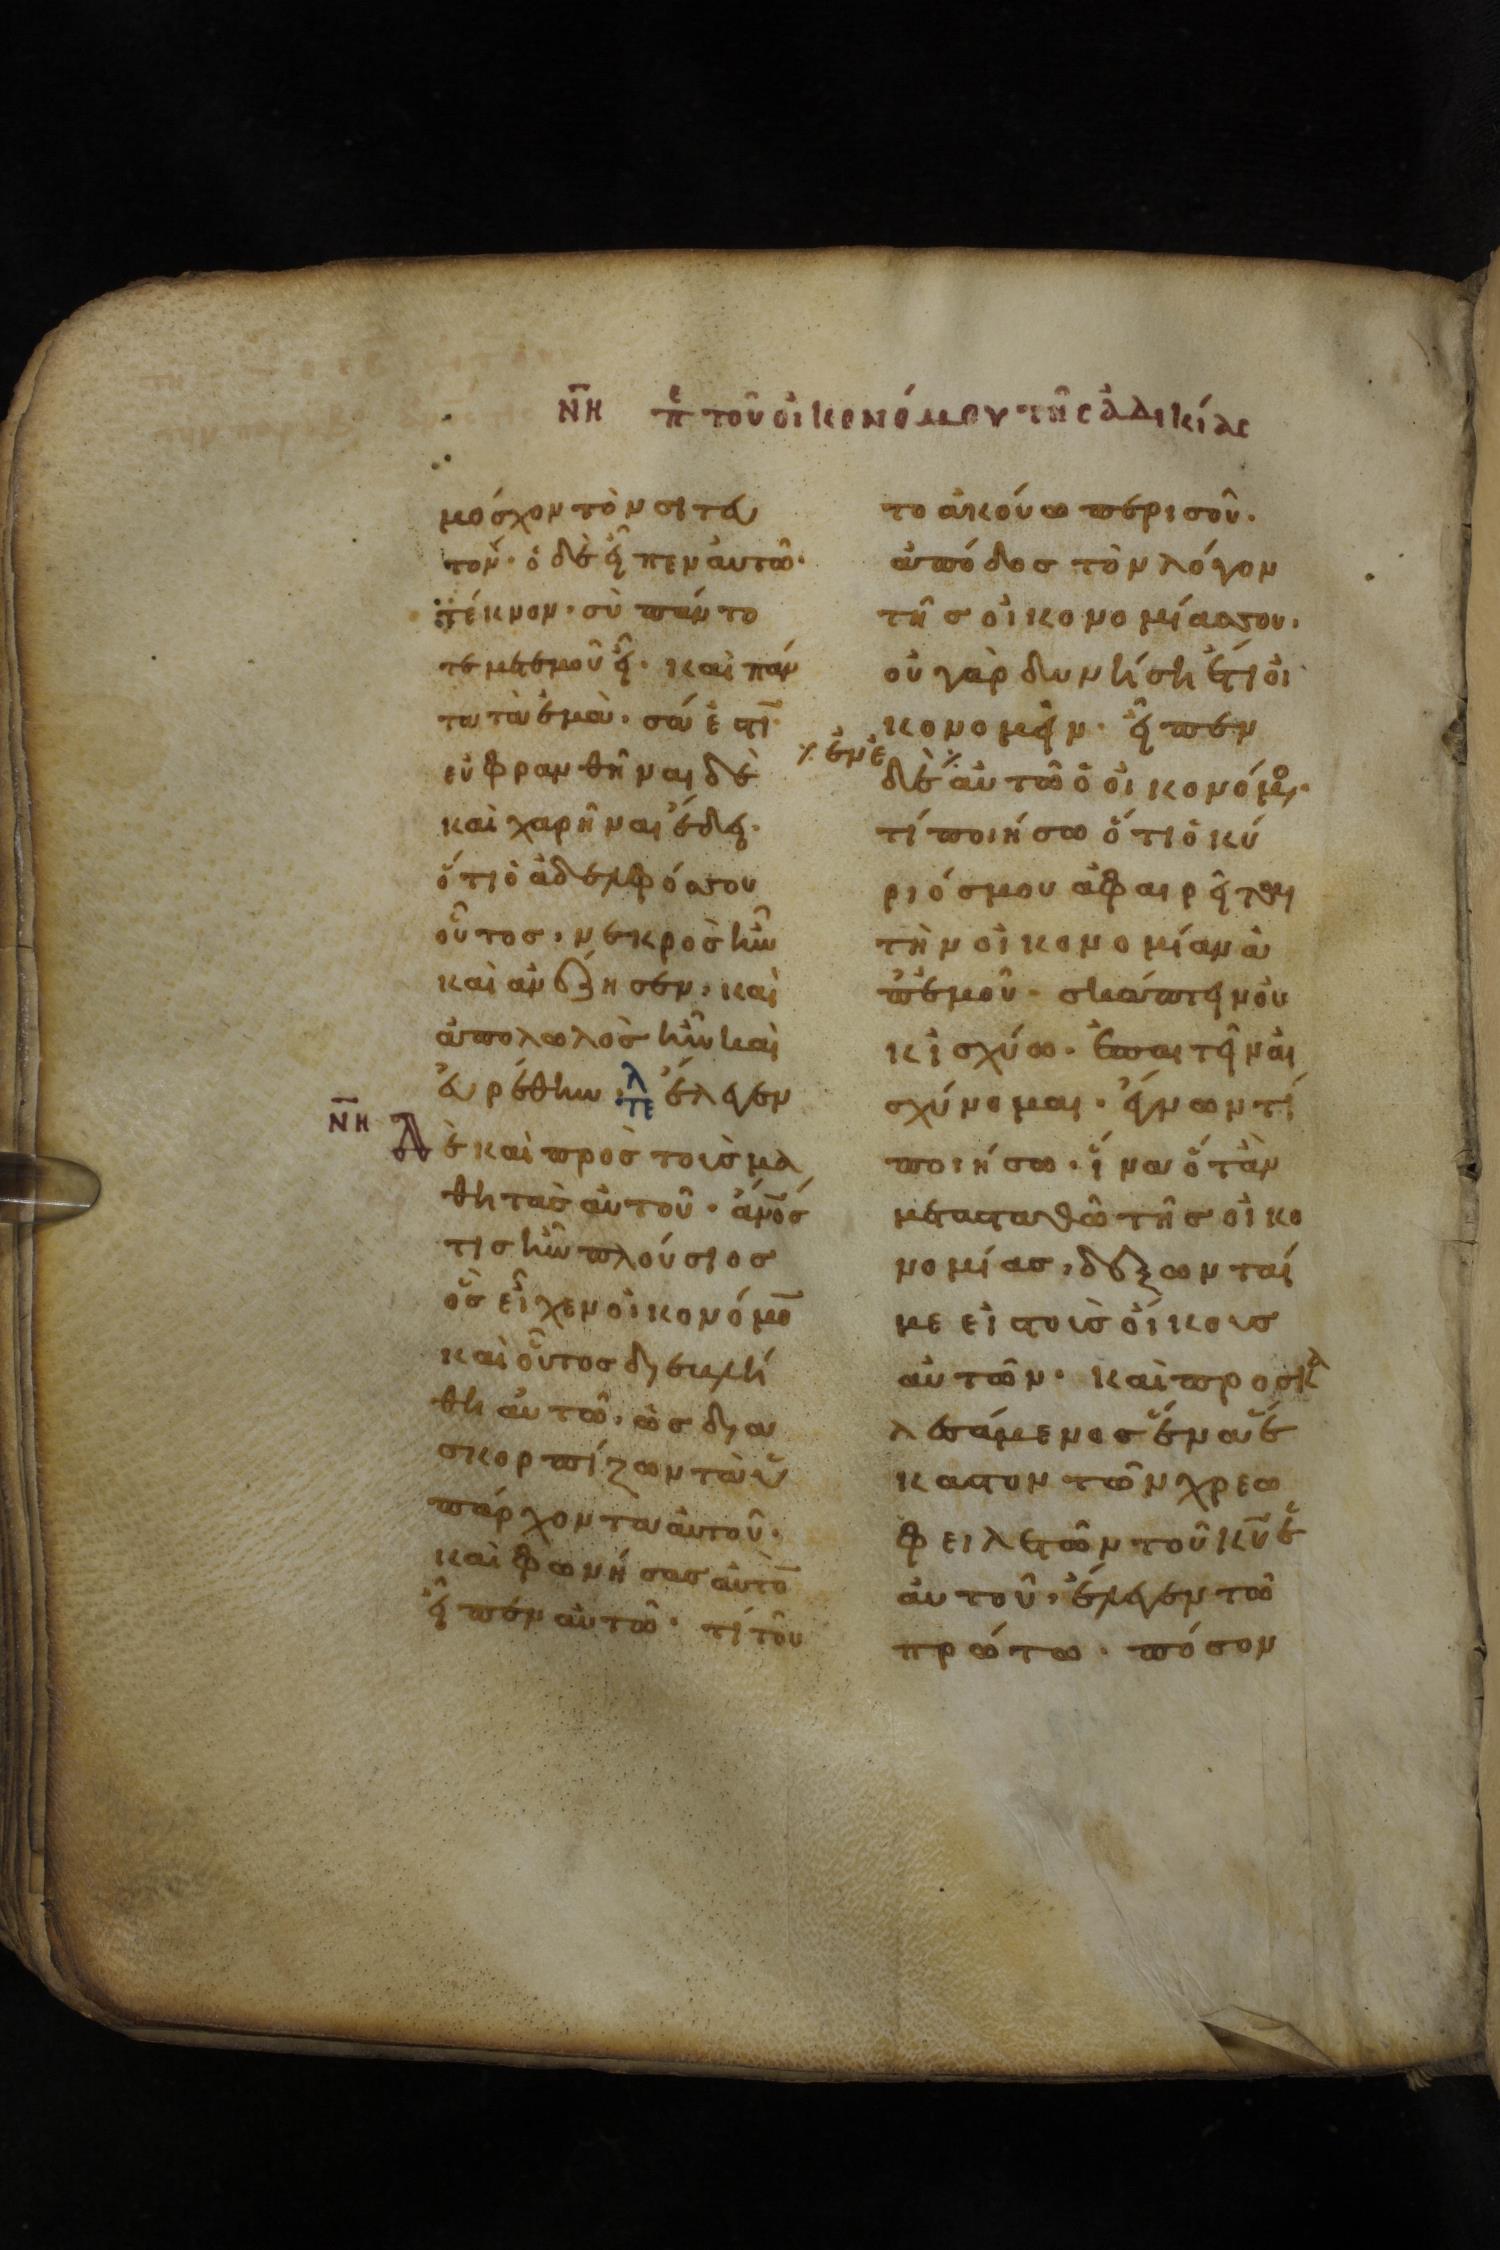 ΝΗ πε τοῦ οἰκονόμου τῆς ἀδικίας
μόσχον τὸν σιτευ
τον· ὁ δὲ εἶπεν αὐτῶ·
τέκνον· σὺ πάντο
τε μετεμοῦ εἶ· καὶ πάν
τα τὰ ἐμὰ· σά ἐστῖ·
εὐφρανθῆναι δὲ
καὶ χαρῆναι ἔδει·
ὅτι ὁ ἀδελφόσσου
οὗτος, νεκρὸσ ἦν
καὶ ἀνέζησεν, καὶ
ἀπολωλὸσ ἦν καὶ
εὑρέθην· τελ ἔλεγεν
ΝΗ
Δὲ καὶ πρὸσ τοὺσ μα
θητὰσ αὐτοῦ· ἄνο̅σ
τισ ἦν πλούσιοσ
ὃσ εἶχεν οἰκονόμο̅
καὶ οὗτοσ διεβλή
θη αὐτῶ, ὡσ δια
σκορπίζων τὰ ὑ
πάρχοντα αὐτοῦ·
καὶ φωνήσασ αὐτὸ̅
εἶπεν αὐτῶ· τί τοῦ
το ἀκούω περι σοῦ·
ἀπόδοσ τὸν λόγον
τῆσ οἰκονομίασσου·
οὐ γὰρ δυνήση ἔτι οἰ
κονομεῖν· εἶπεν
⁒ ἐμε
δὲ ⁒ αὐτῶ ὁ οἰκονόμος·
τί ποιήσω ὅτι ὁ κύ
ριόσμου ἀφαιρεῖται
τὴν οἰκονομίαν ἀ
πἐμοῦ· σκάπτειν οὐ
κ ἰσχύω· ἐπαιτεῖν αἰ
σχύνομαι· ἔγνων τί
ποιήσω· ἵνα ὅτὰν
μετασταθῶ τῆσ οἰκο
νομίασ, δέξωνταί
με εἰστοὺσ οἴκουσ
αὐτῶν· καὶ προσκα
λεσάμενοσ ἕνα ἕ
καστον τῶν χρεω
φειλετῶν τοῦ κῡ ἑ
αυτοῦ, ἔλεγεν τῶ
πρώτω· πόσον